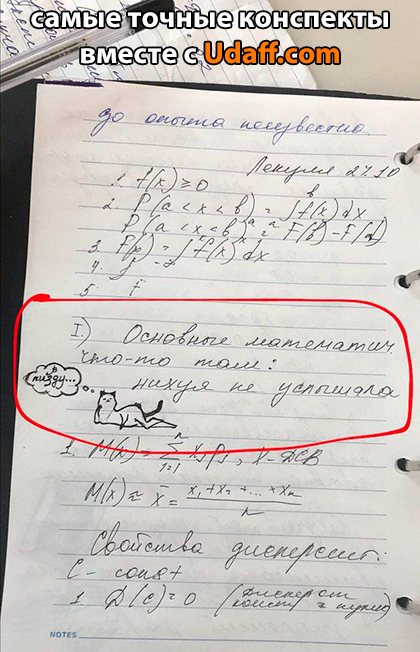 самые точные конспекты
вместе с Udaff.com
до опыта неизвестно
Лекция 27.10
1. f(x) ≥ 0
2. P(a < x < b) = ∫ₐᵇ f(x) dx
P(a < x < b) = F(b) - F(a)
3. F(x) = ∫ f(x) dx
4.
5.
I) Основные математич.
что-то там:
нихуя не услышала
в пизду...
1. M(x) = Σ xᵢ pᵢ, x - ДСВ
M(x) ≈ x̄ = x₁ + x₂ + ... + xₙ / n
Свойства дисперсии:
C - const
1 D(C) = 0 (дисперс от конст = нулю)
NOTES